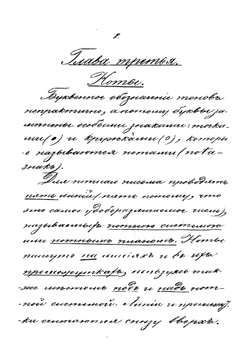 8.
Глава третья.
Ноты.
Буквенное обозначение тонов
непрактично, а потому буквы за-
менены особыми знаками: точка-
ми (•) и кружками (о), которы-
е называются нотами (nota-
знакъ).
Для нотнаго письма проводятъ
пять линий (пять потому, что
это самое удоборазличаемое число),
называемыхъ нотною системою
или нотнымъ станомъ. Ноты
пишутъ на линiяхъ и въ
промежуткахъ, пользуясь так-
же мѣстомъ подъ и надъ нот-
ной системой. Линiи и промежут-
ки считаются снизу вверхъ.